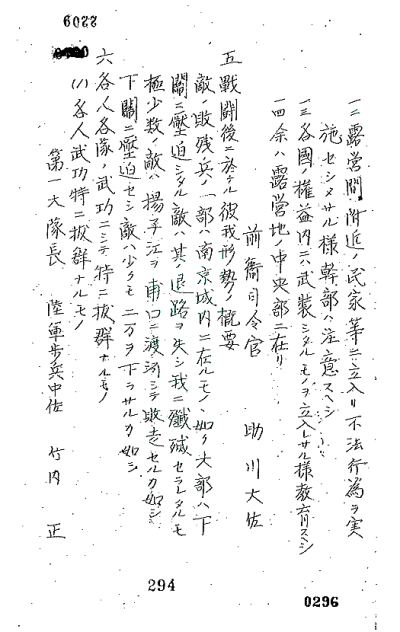 6022
一二、露営間、附近ノ民家等ニ立入リ不法行為ヲ実
施セシメサル様幹部ハ注意スヘシ
一三、各國ノ權益内ニハ武装シタルモノヲ立入レサル様教育スヘシ
一四、余ハ露営地ノ中央部ニ在リ
前衞司令官 助川大佐
五、戰鬪後ニ於ケル彼我形勢ノ概要
敵ノ敗残兵ノ一部ハ南京城内ニ在ルモノヽ如ク大部ハ下
關ニ壓迫シタル敵ハ其ノ退路ヲ失シ我ニ殲滅セラレタルモ
極少数ノ敵ハ揚子江ヲ浦口ニ渡河シテ敗走セルカ如シ
下關ニ壓迫セシ敵ハ少クモ二万ヲ下ラサルカ如シ
六、各人各隊ノ武功ニシテ特ニ拔群ナルモノ
(1) 各人武功特ニ拔群ナルモノ
第一大隊長 陸軍歩兵中佐 竹内 正
294
0296